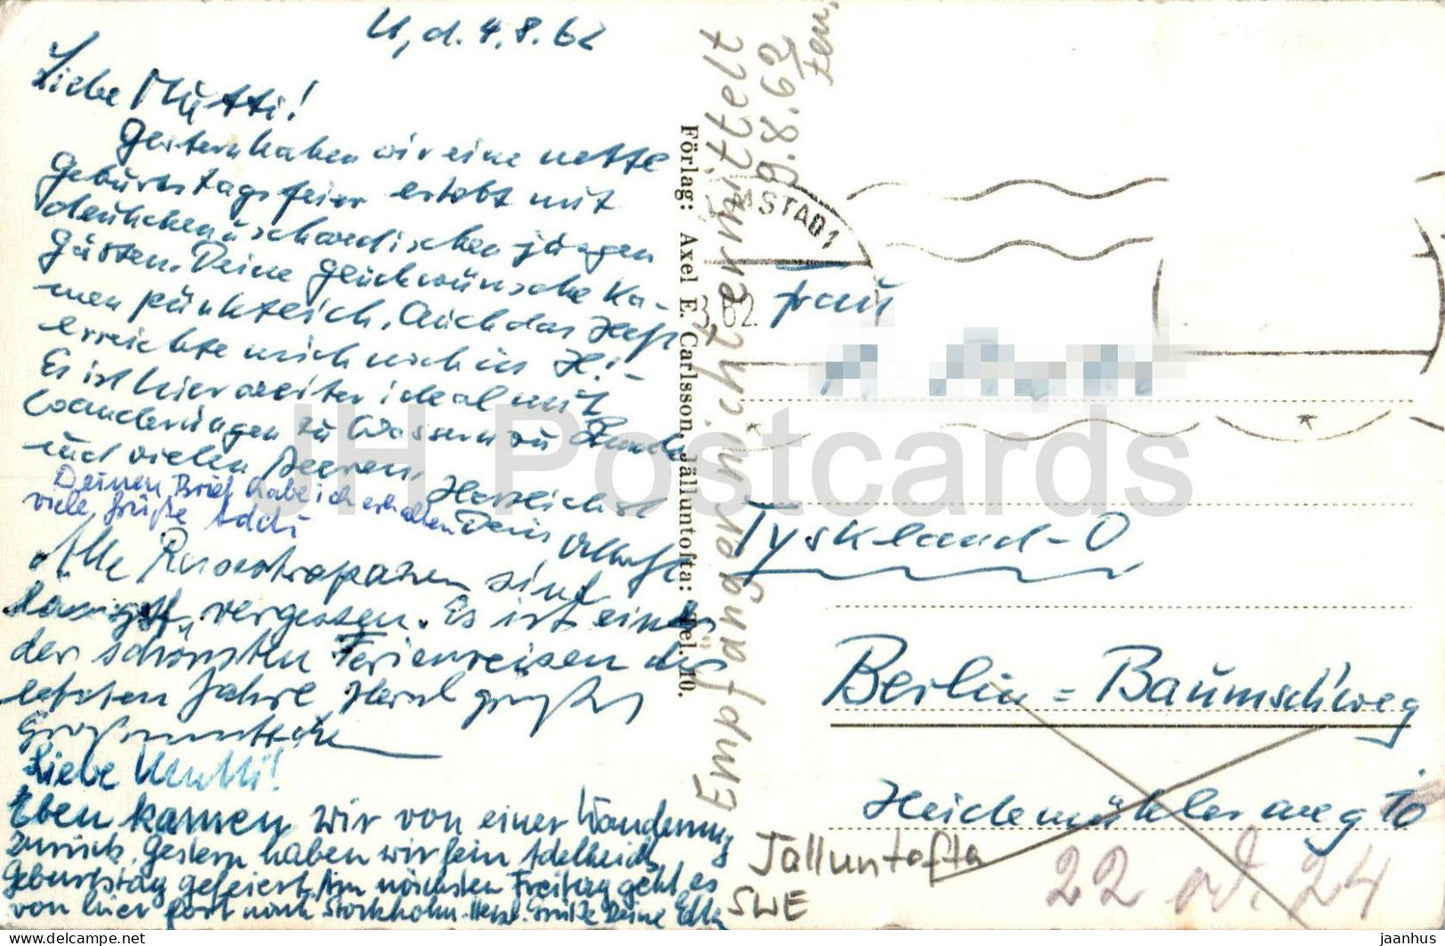 U, d. 4.8.62
Liebe Mutti!
Gestern haben wir eine nette
Geburtstagsfeier erlebt mit
deutschen u schwedischen jungen
Gästen. Deine Glückwünsche ka-
men pünktlich. Auch das Heft
erreichte mich noch in Hi-
Es ist hier weiter ideal mit
Wanderungen zu Wasser u zu Lande
und vielen Beeren. Herzlichst
Dein
Deinen Brief habe ich erhalten
viele Grüße Addi
Alle Reisestrapazen sind
längst vergessen. Es ist eine
der schönsten Ferienreisen der
letzten Jahre. Herzl grüßt
Großmuttchen
Liebe Mutti!
Eben kamen wir von einer Wanderung
zurück. Gestern haben wir fein Adelheids
Geburtstag gefeiert. Am nächsten Freitag geht es
von hier fort nach Stockholm. Herzl. Grüße Deine Edla
Förlag: Axel E. Carlsson, Jälluntofta: Tel. 10.
Empfänger nicht ermittelt
9.8.62
MSTAD1
8.62
Frau
Tyskland-O
Berlin=Baumschulweg
Heidemühlerweg 10
22 od. 24
Jälluntofta
SWE
JH Postcards
jaanhus